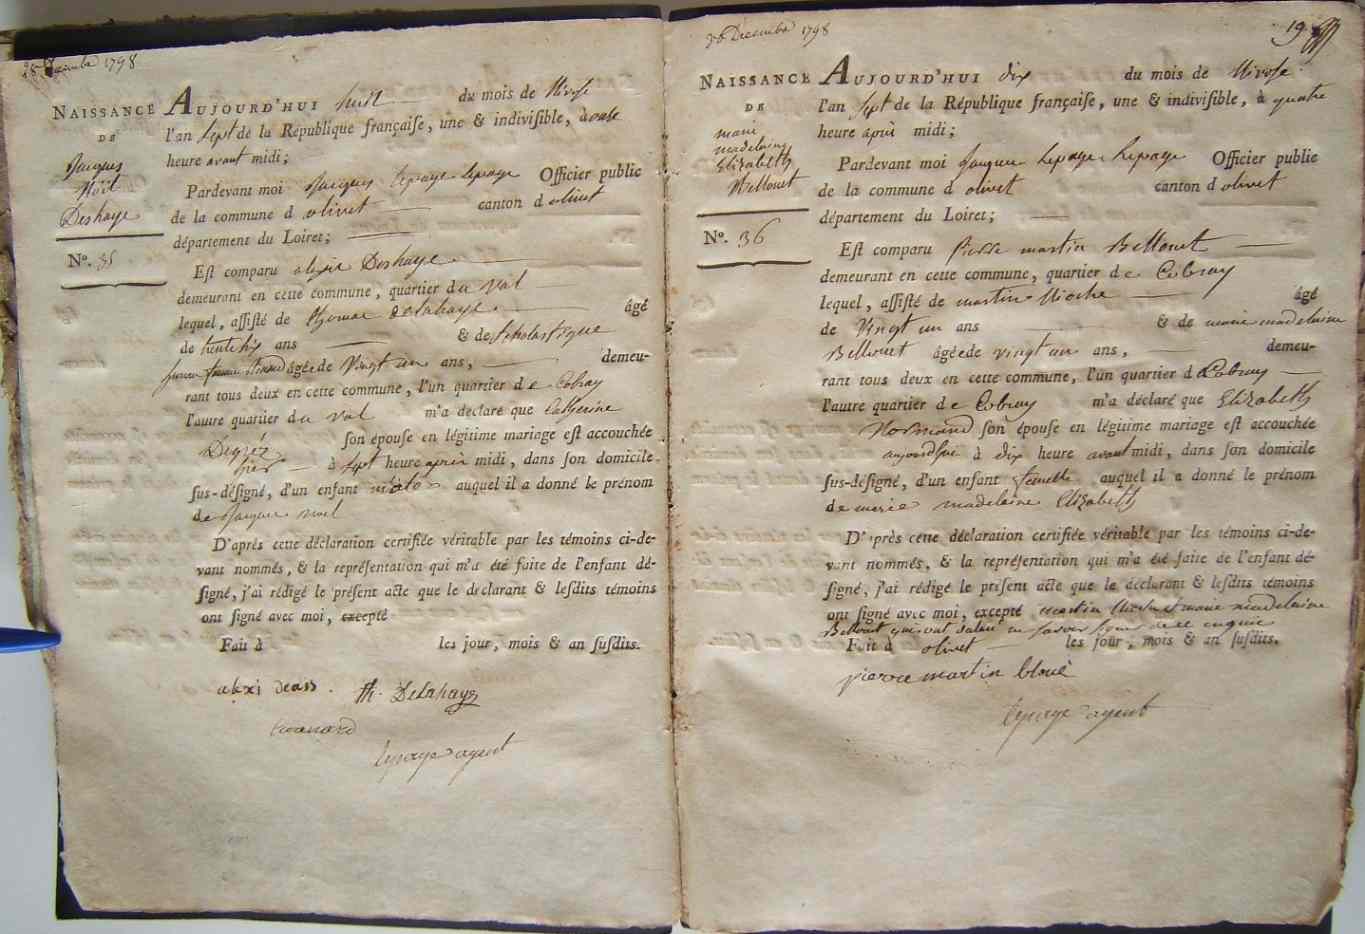 28 Décembre 1798
NAISSANCE
DE
Jacques
Noël
Deshaye
N°. 35
AUJOURD'HUI huit du mois de Nivose
l'an sept de la République françaiſe, une & indiviſible, à onze
heure avant midi;
Pardevant moi Jacques Lepage Lepage Officier public
de la commune d olivet canton d olivet
département du Loiret;
Eſt comparu alexis Deshaye
demeurant en cette commune, quartier du val
lequel, aſſiſté de Thomas delahaye âgé
de trente six ans & de Scholastique
âgée de Vingt un ans, demeu-
rant tous deux en cette commune, l'un quartier de Cobray
l'autre quartier du val m'a déclaré que Catherine
Degréz ſon épouse en légitime mariage eſt accouchée
hier à sept heure après midi, dans ſon domicile
ſus-déſigné, d'un enfant mâle auquel il a donné le prénom
de Jacques noel
D'après cette déclaration certifiée véritable par les témoins ci-de-
vant nommés, & la repréſentation qui m'a été faite de l'enfant dé-
ſigné, j'ai rédigé le préſent acte que le déclarant & leſdits témoins
ont ſigné avec moi, excepté
Fait à les jour, mois & an ſuſdits.
alexi deass. th. Delahaye
Lepage agent
30 Decembre 1798
19
NAISSANCE
DE
marie
madelaine
Elizabeth
Bellouet
N°. 36
AUJOURD'HUI dix du mois de Nivose
l'an sept de la République françaiſe, une & indiviſible, à quatre
heure après midi;
Pardevant moi Jacques Lepage Lepage Officier public
de la commune d olivet canton d olivet
département du Loiret;
Eſt comparu Pierre martin Bellouet
demeurant en cette commune, quartier de Cobray
lequel, aſſiſté de martin Mioche âgé
de Vingt un ans & de marie madelaine
Bellouet âgée de vingt un ans, demeu-
rant tous deux en cette commune, l'un quartier d Cobray
l'autre quartier de Cobray m'a déclaré que Elizabeth
Normand ſon épouse en légitime mariage eſt accouchée
aujourdhui à dix heure avant midi, dans ſon domicile
ſus-déſigné, d'un enfant femelle auquel il a donné le prénom
de marie madelaine Elizabeth
D'après cette déclaration certifiée véritable par les témoins ci-de-
vant nommés, & la repréſentation qui m'a été faite de l'enfant dé-
ſigné, j'ai rédigé le préſent acte que le déclarant & leſdits témoins
ont ſigné avec moi, excepté martin Mioche & marie madelaine
Bellouet qui ont savoir signer de ce enquis
Fait à olivet les jour, mois & an ſuſdits.
pierre martin bloué
Lepage agent